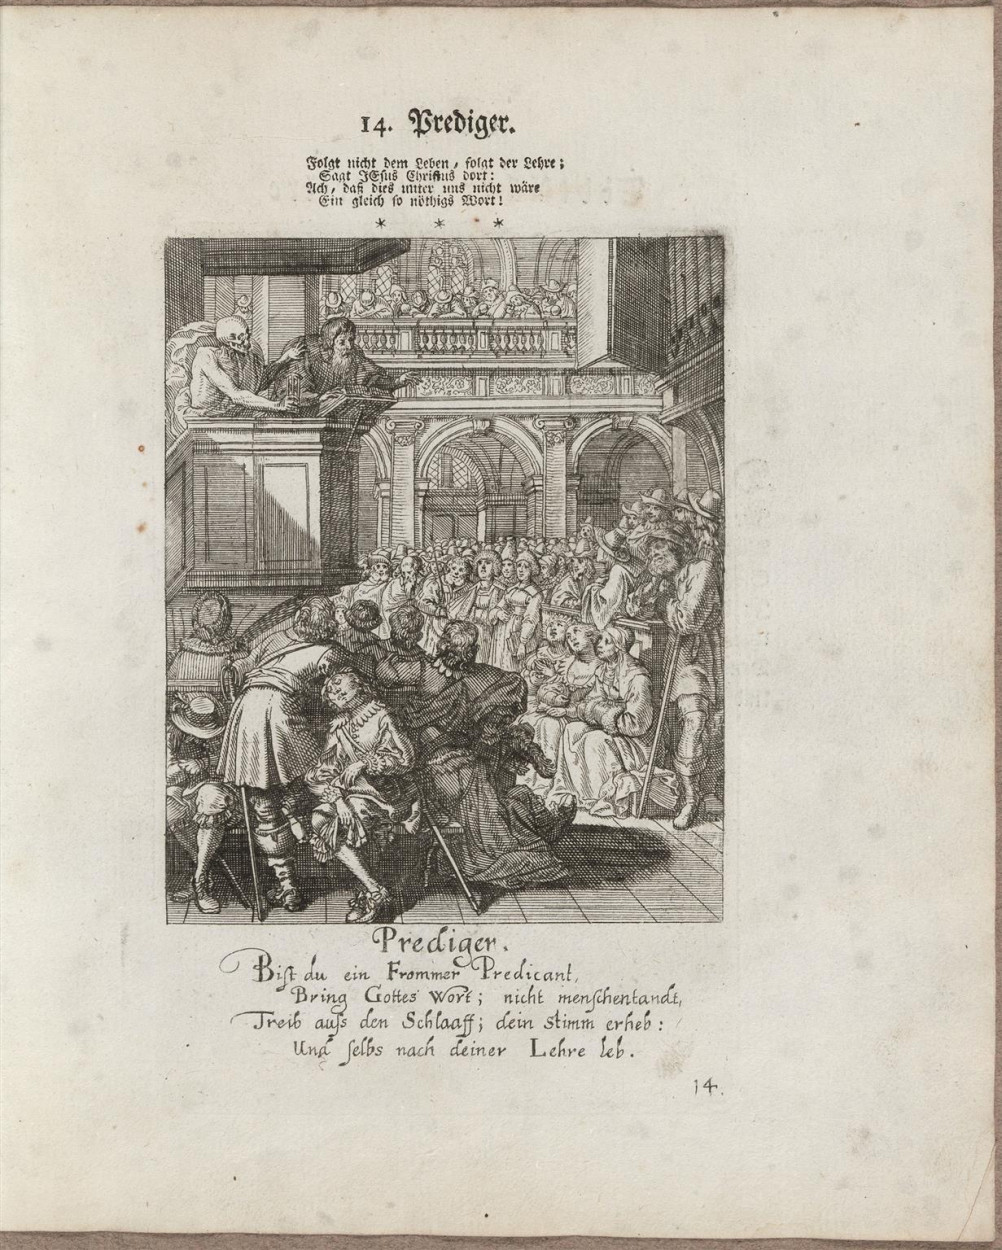 14. Prediger.
Folgt nicht dem Leben, folgt der Lehre;
Sagt JEsus Christus dort:
Ach, daß dies unter uns nicht wäre
Ein gleich so nöthigs Wort!
* * *
Prediger.
Bist du ein Frommer Predicant,
Bring Gottes Wort; nicht menschentandt,
Treib auss den Schlaaff; dein stimm erheb:
Und selbs nach deiner Lehre leb.
14.